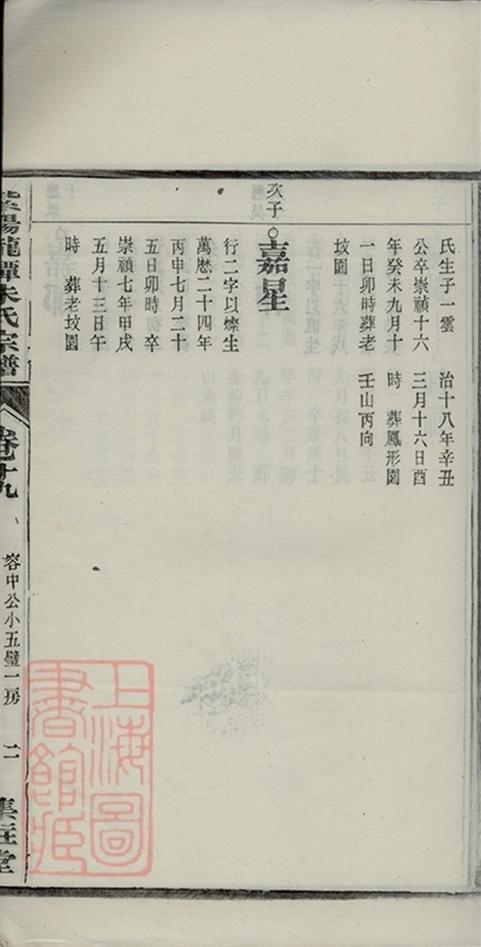 氏生子一雲
公卒崇禎十六
年癸未九月十
一日卯時葬老
坟園
治十八年辛丑
三月十六日酉
時 葬鳳形園
壬山丙向
次子
嘉星
行二字以燦生
萬厯二十四年
丙申七月二十
五日卯時 卒
崇禎七年甲戌
五月十三日午
時 葬老坟園
紫陽龍潭朱氏宗譜
卷十九
容中公小五璧一房
二
集註堂
上海圖
書館藏